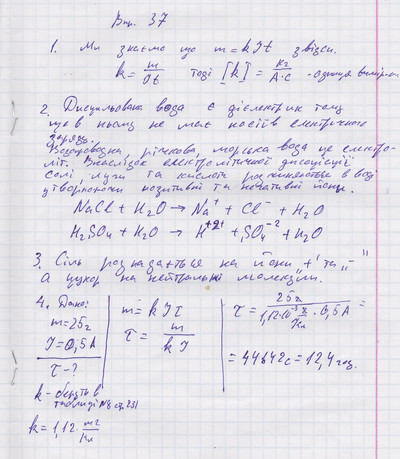 Впр. 37
1. Ми знаємо що m = kIt звідси.
k = m/It тоді [k] = кг/А·с - одиниця вимірюв.
2. Дисцильована вода є діелектрик тому
що в ньому не має носіїв електричного
заряду.
Водопровідна, річкова, морська вода це електро-
літ. Внаслідок електролітичної дисоціації
солі, луги та кислоти розкладаються в воді
утворюючи позитивні та негативні йони.
NaCl + H₂O → Na⁺ + Cl⁻ + H₂O
H₂SO₄ + H₂O → H⁺²⁺ + SO₄⁻² + H₂O
3. Сіль розкладається на йони „+" та „-"
А цукор на нейтральні молекули.
4. Дано:
m = 25г
I = 0,5А
τ - ?
k - беруть в
таблиці №8 ст. 231
k = 1,12 · мг/Кл
m = kIτ
τ = m/kI
τ = 25г / 1,12·10⁻³ г/Кл · 0,5А =
= 44642с = 12,4 год.